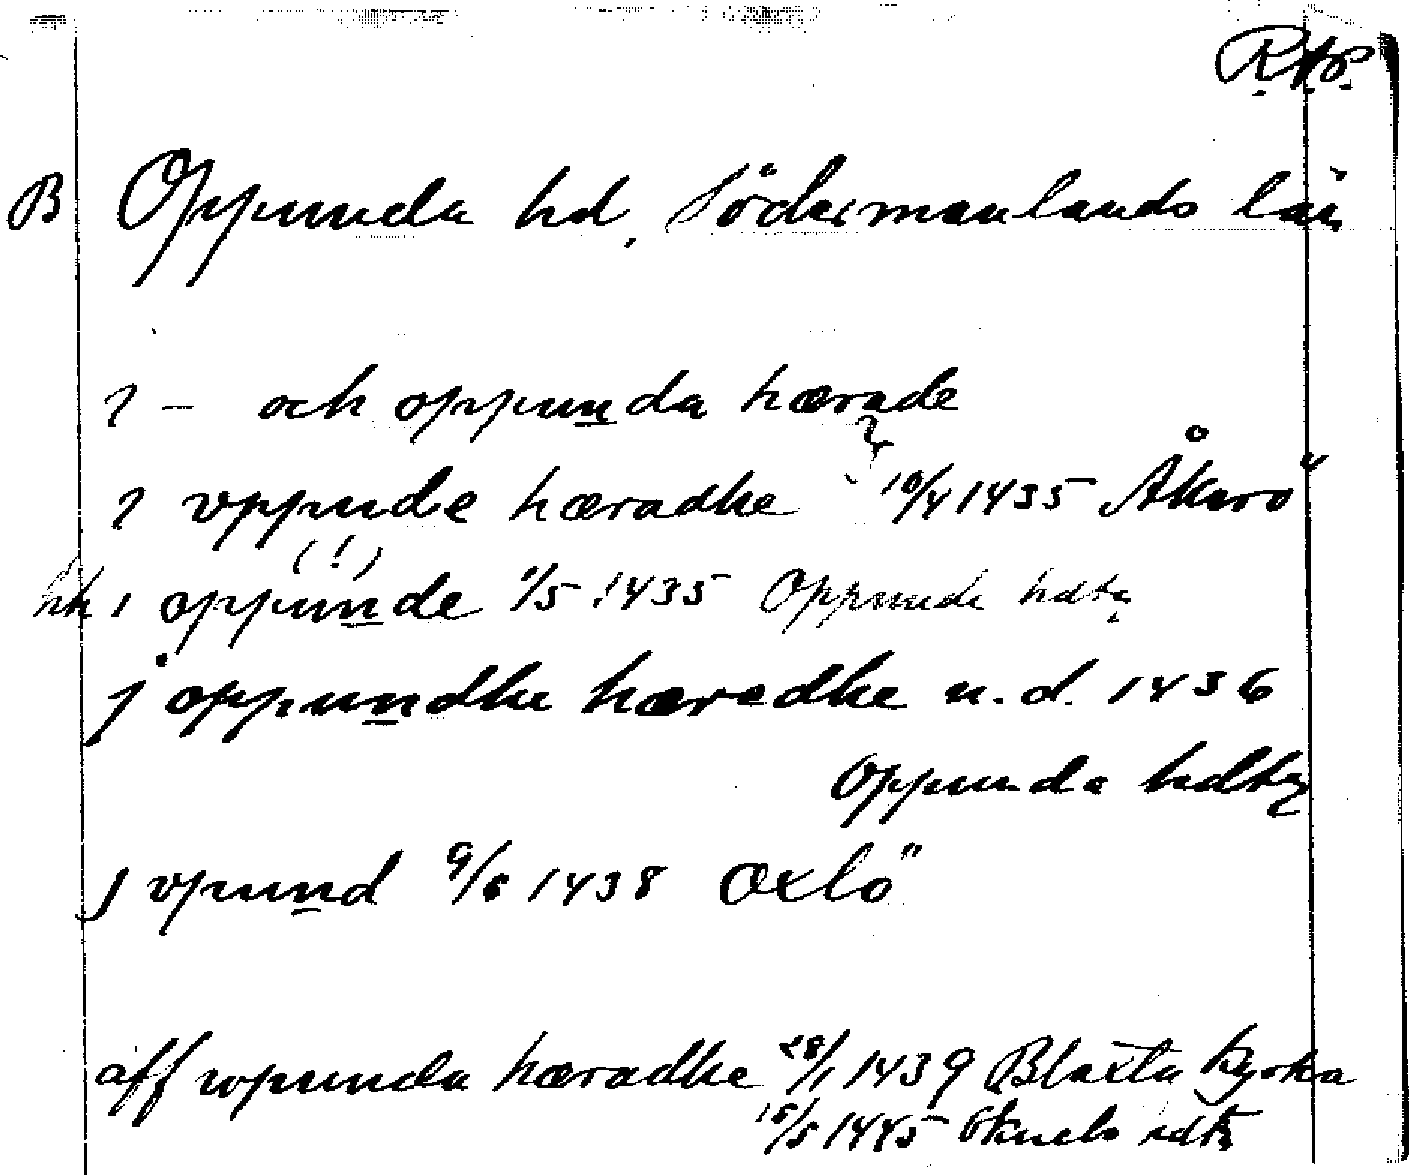 R.A.P.
B Oppunda hd, Södermanlands län
i – och oppunda hærade
i vppunde hæradhe 10/4 1435 Åkerö
(!)
i oppunde 1/5 1435 Oppunda hdtg
j oppundhe hæredhe u.d. 1436
Oppunda hdtg
j vpund 9/6 1438 Oxlö
aff wpunda hæradhe 28/1 1439 Blaxta kyrka
15/5 1445